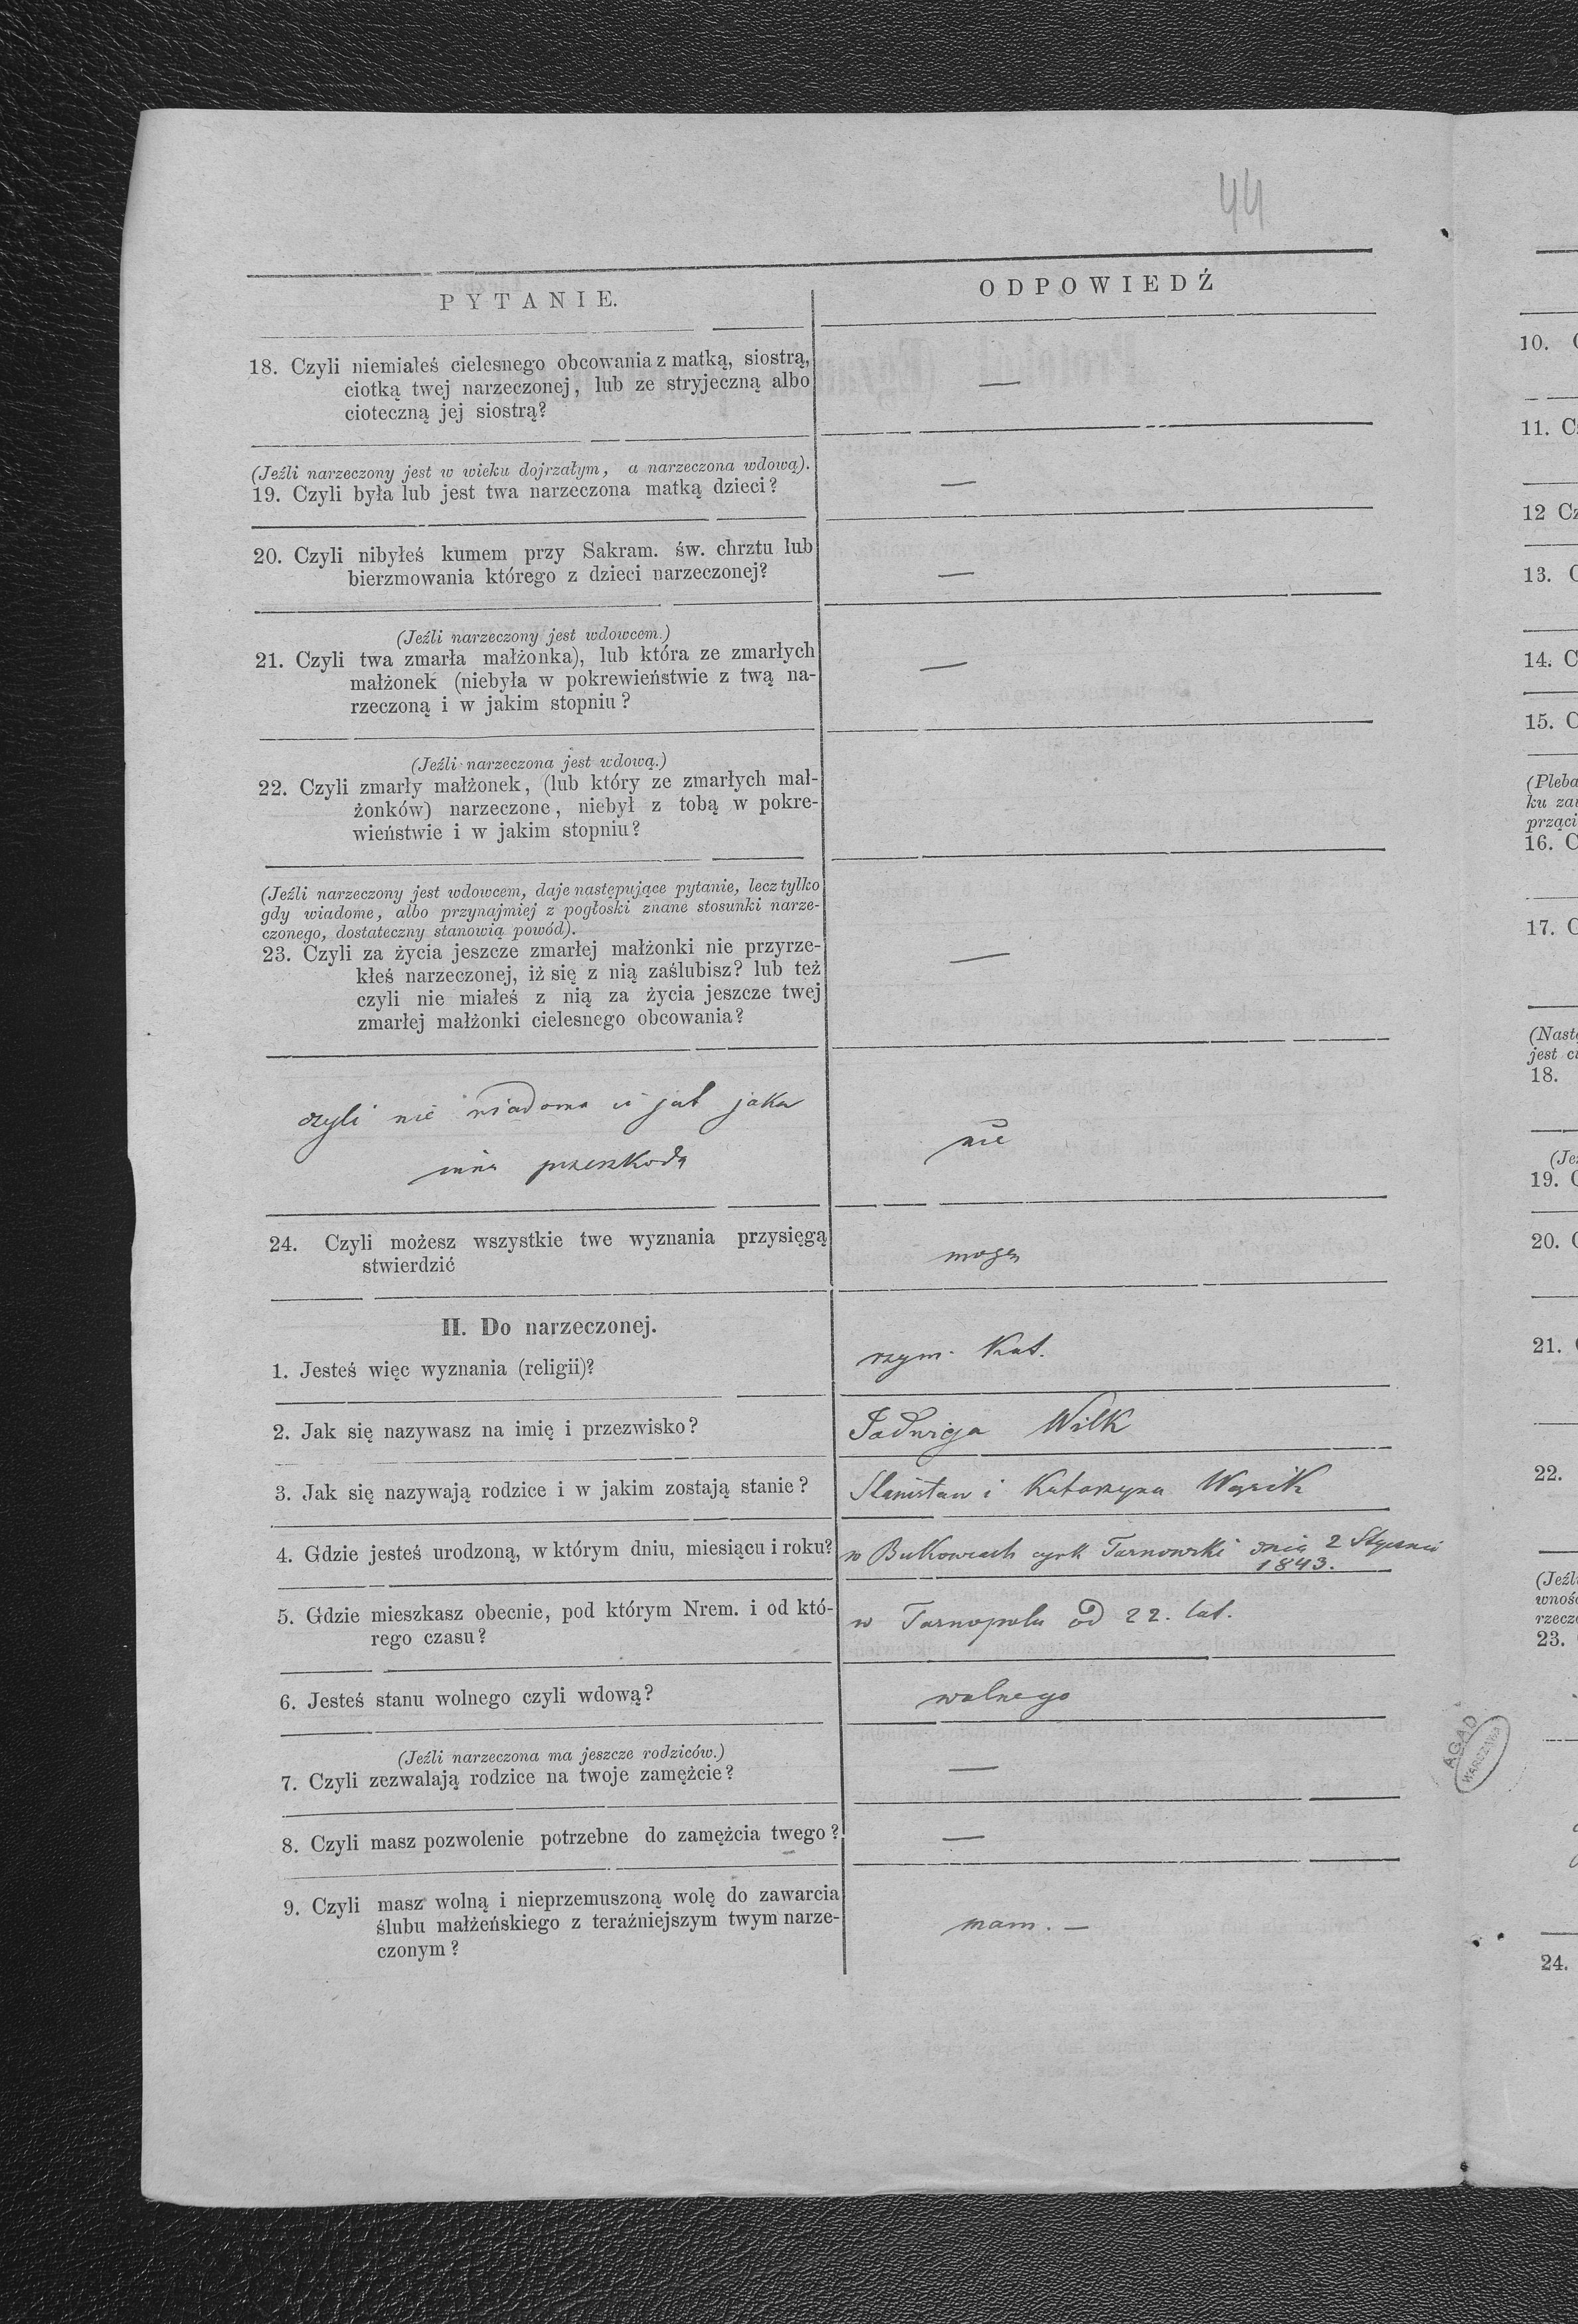 44
PYTANIE.
ODPOWIEDŹ
18. Czyli niemiałeś cielesnego obcowania z matką, siostrą,
ciotką twej narzeczonej, lub ze stryjeczną albo
cioteczną jej siostrą?
—
(Jeźli narzeczony jest w wieku dojrzałym, a narzeczona wdową).
19. Czyli była lub jest twa narzeczona matką dzieci?
—
20. Czyli nibyłeś kumem przy Sakram. św. chrztu lub
bierzmowania którego z dzieci narzeczonej?
—
(Jeźli narzeczony jest wdowcem.)
21. Czyli twa zmarła małżonka), lub która ze zmarłych
małżonek (niebyła w pokrewieństwie z twą na-
rzeczoną i w jakim stopniu?
—
(Jeźli narzeczona jest wdową.)
22. Czyli zmarły małżonek, (lub który ze zmarłych mał-
żonków) narzeczone, niebył z tobą w pokre-
wieństwie i w jakim stopniu?
(Jeźli narzeczony jest wdowcem, daje następujące pytanie, lecz tylko
gdy wiadome, albo przynajmiej z pogłoski znane stosunki narze-
czonego, dostateczny stanowią powód).
23. Czyli za życia jeszcze zmarłej małżonki nie przyrze-
kłeś narzeczonej, iż się z nią zaślubisz? lub też
czyli nie miałeś z nią za życia jeszcze twej
zmarłej małżonki cielesnego obcowania?
—
czyli nie wiadoma ci jest jaka
inna przeszkoda
nie
24. Czyli możesz wszystkie twe wyznania przysięgą
stwierdzić
mogę
II. Do narzeczonej.
1. Jesteś więc wyznania (religii)?
rzym. Kat.
2. Jak się nazywasz na imię i przezwisko?
Jadwiga Wilk
3. Jak się nazywają rodzice i w jakim zostają stanie?
Stanisław i Katarzyna
4. Gdzie jesteś urodzoną, w którym dniu, miesiącu i roku?
w cyrk Tarnowski dnia 2 Stycznia
1843.
5. Gdzie mieszkasz obecnie, pod którym Nrem. i od któ-
rego czasu?
w Tarnopolu od 22. lat.
6. Jesteś stanu wolnego czyli wdową?
wolnego
(Jeźli narzeczona ma jeszcze rodziców.)
7. Czyli zezwalają rodzice na twoje zamęźcie?
—
8. Czyli masz pozwolenie potrzebne do zamężcia twego?
—
9. Czyli masz wolną i nieprzemuszoną wolę do zawarcia
ślubu małżeńskiego z teraźniejszym twym narze-
czonym?
mam. —
AGAD
WARSZAWA
10.
11. C
12 Cz
13. C
14. C
15. C
(Pleba
ku za
prząci
16. C
17. C
(Nast
jest c
18.
(Je
19. C
20. C
21.
22.
(Jeźl
wnoś
rzecz
23.
24.